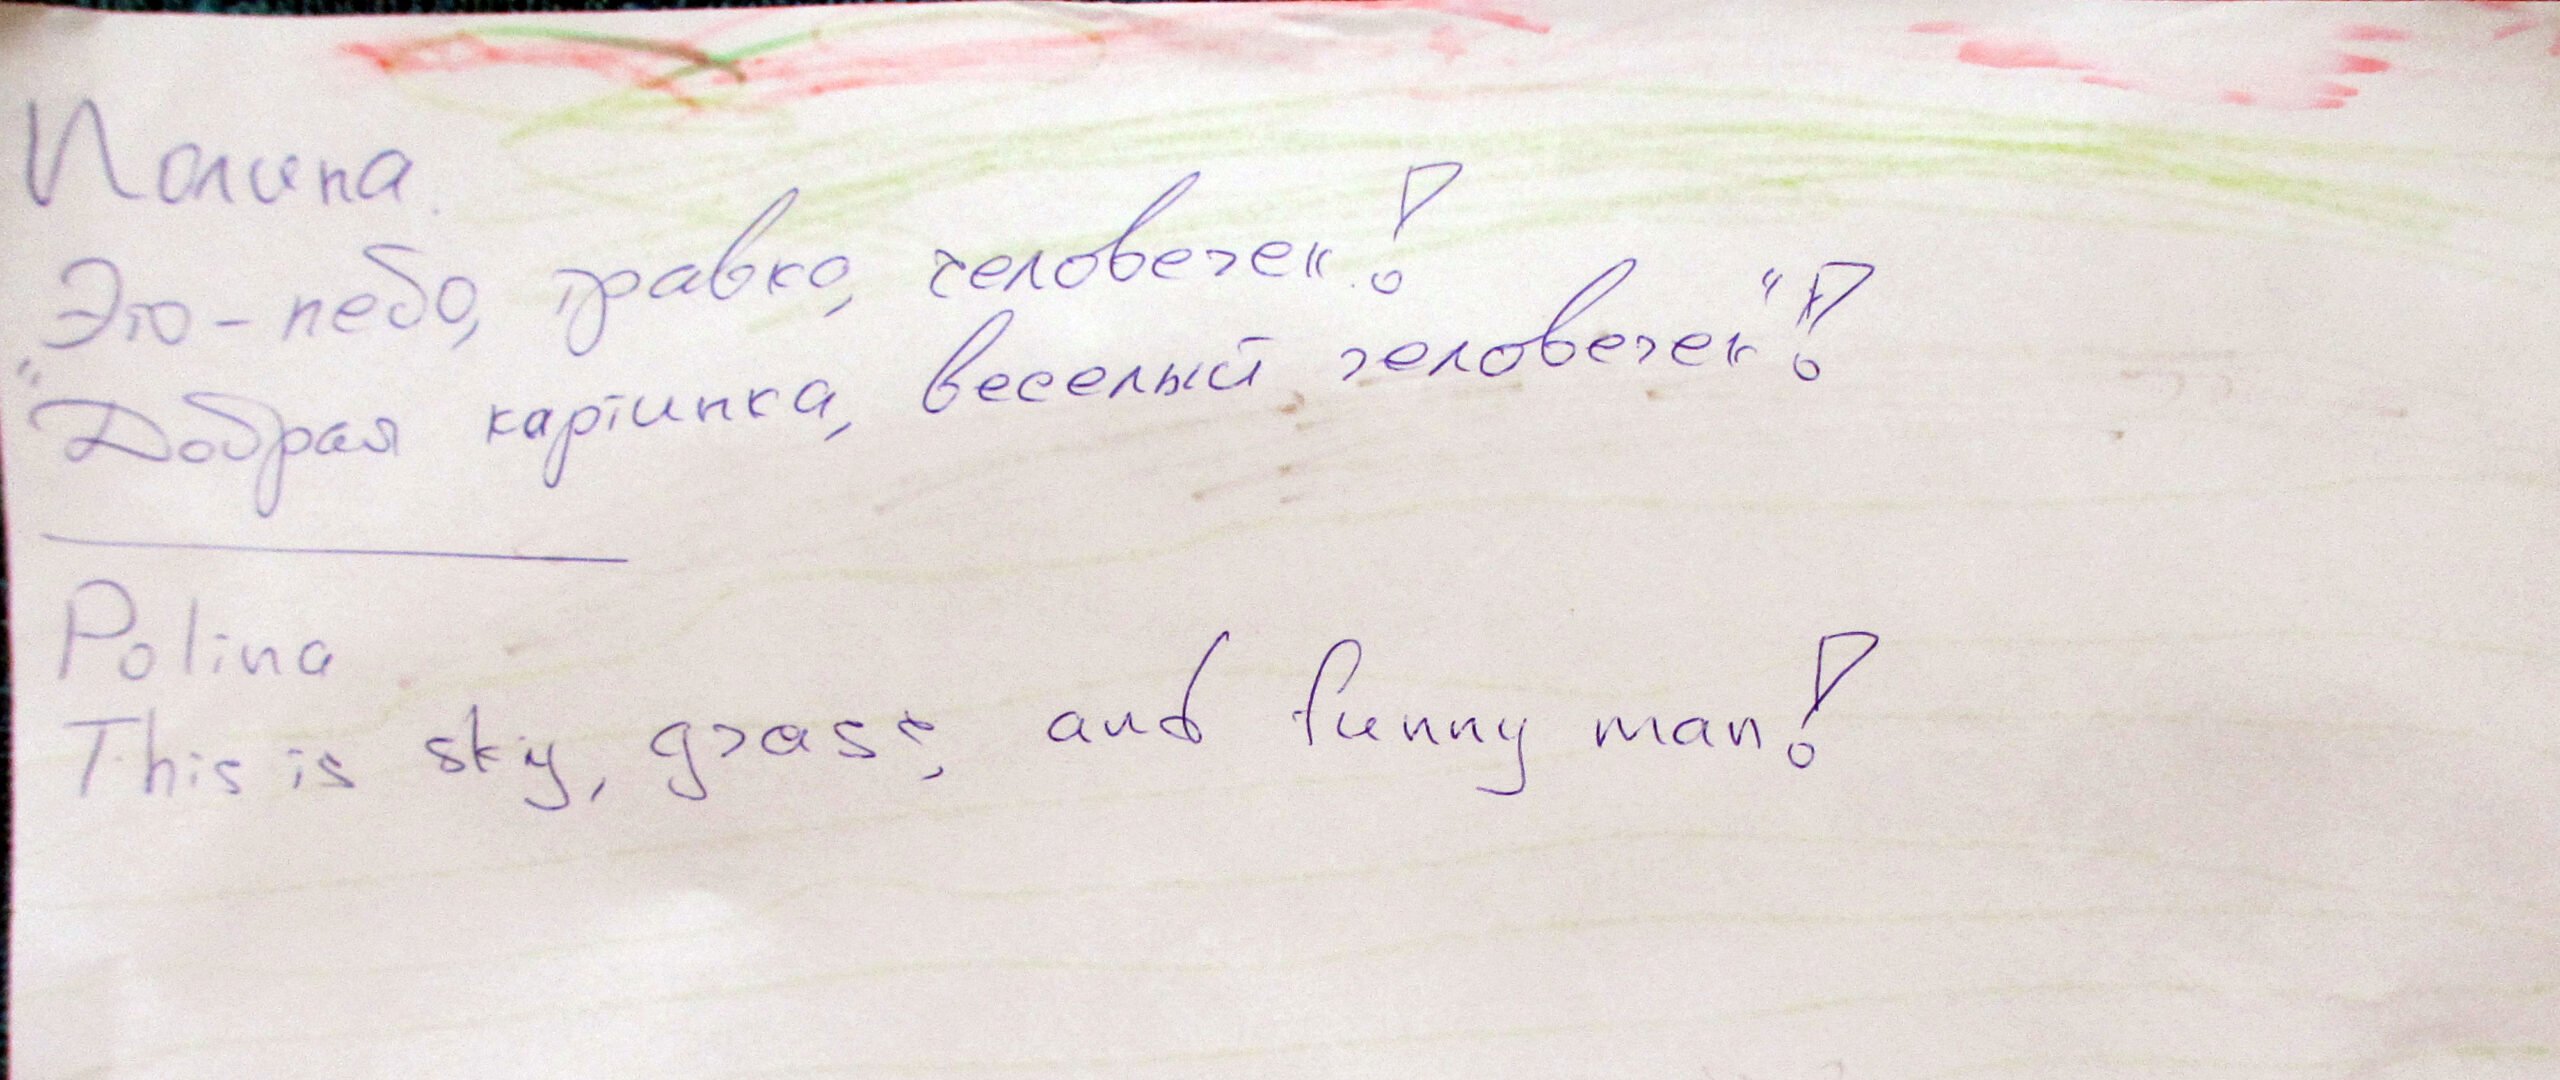 Полина.
Это - небо, травка, человечек!
"Добрая картинка, веселый человечек"!
Polina
This is sky, grass, and funny man!